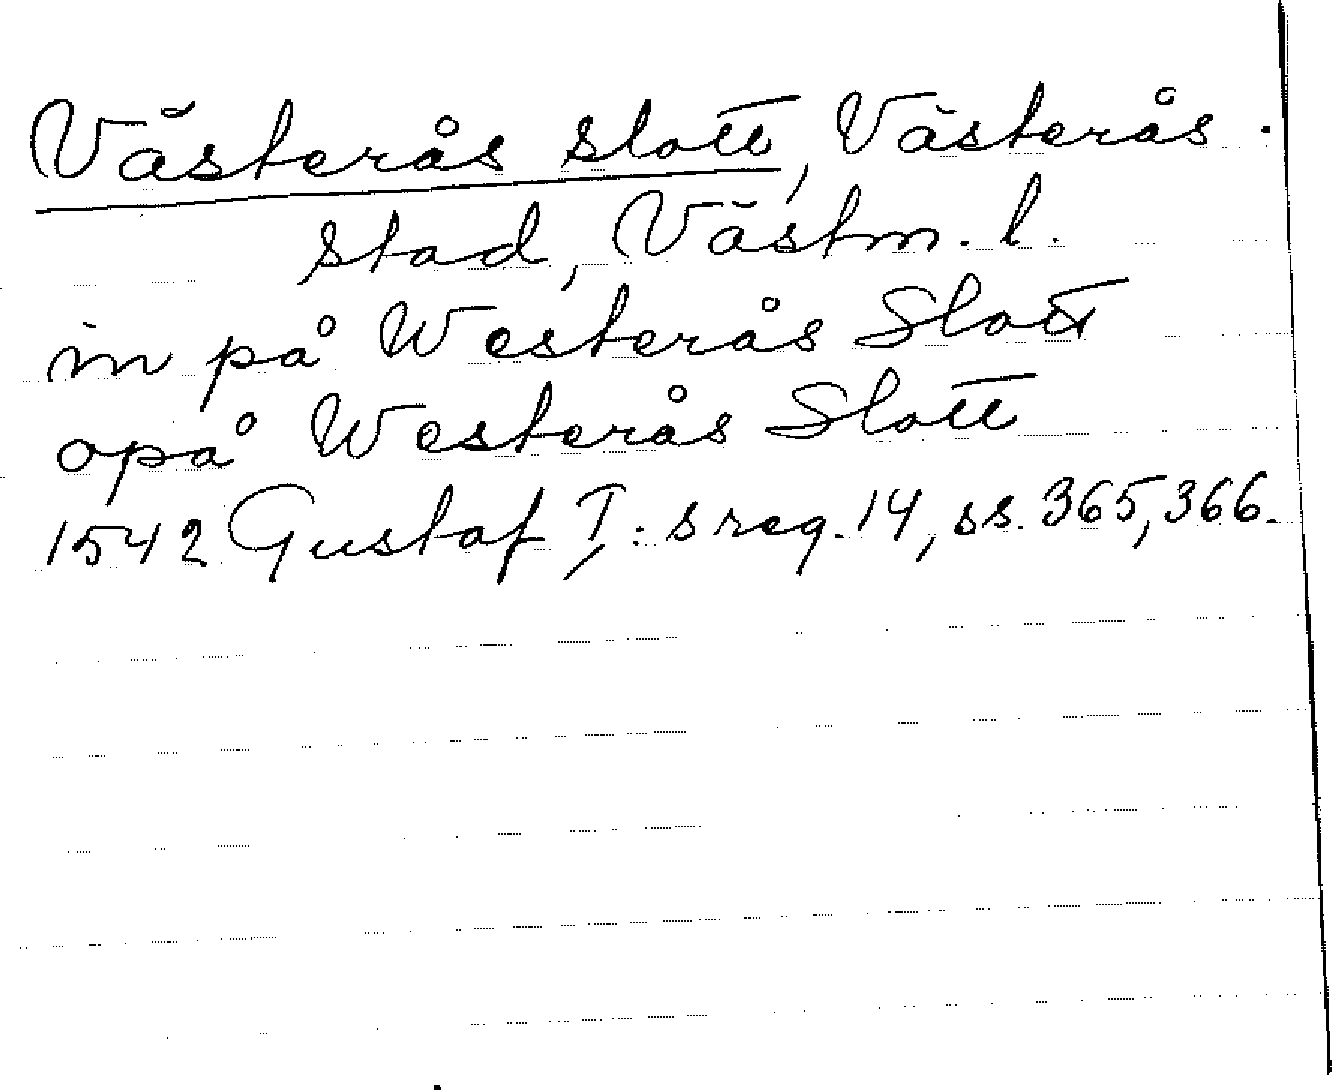 Västerås slott, Västerås.
stad, Västm. l.
in på Westerås Slott
opå Westerås Slott
1542 Gustaf I:s reg. 14, ss. 365, 366.